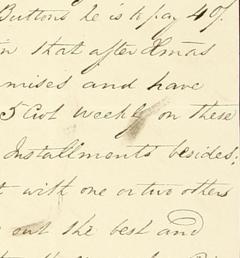 Buttons he is to pay 40/.
that after Xmas
mises and have
5 Cwt weekly on these
Installments besides;
with one or two others
out the best and